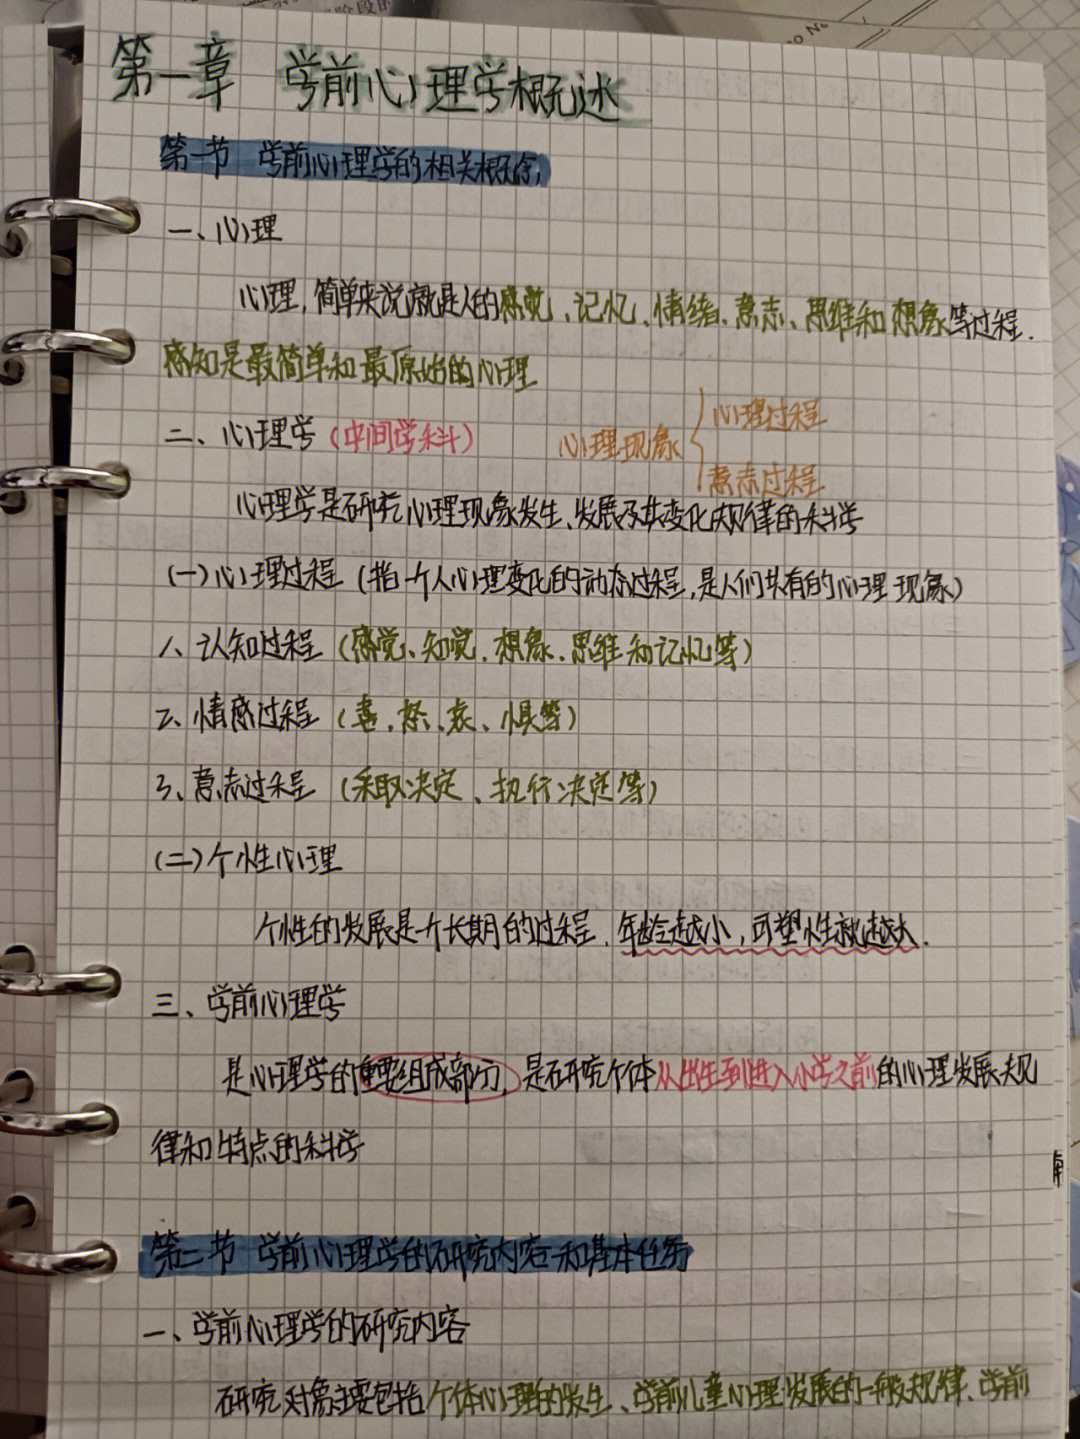 阶段的
No
第一章 学前心理学概述
第一节 学前心理学的相关概念
一、心理
心理,简单来说就是人的感觉、记忆、情绪、意志、思维和想象等过程.
感知是最简单和最原始的心理
二、心理学(中间学科) 心理现象
心理过程
意志过程
心理学是研究心理现象发生、发展及其变化规律的科学
(一)心理过程(指一个人心理变化的动态过程,是人们共有的心理现象)
1、认知过程(感觉、知觉、想象、思维和记忆等)
2、情感过程(喜、怒、哀、惧等)
3、意志过程(采取决定、执行决定等)
(二)个性心理
个性的发展是一个长期的过程,年龄越小,可塑性就越大.
三、学前心理学
是心理学的重要组成部分,是研究个体从出生到进入小学之前的心理发展规
律和特点的科学
第二节 学前心理学的研究内容和基本任务
一、学前心理学的研究内容
研究对象主要包括个体心理的发生、学前儿童心理发展的一般规律、学前